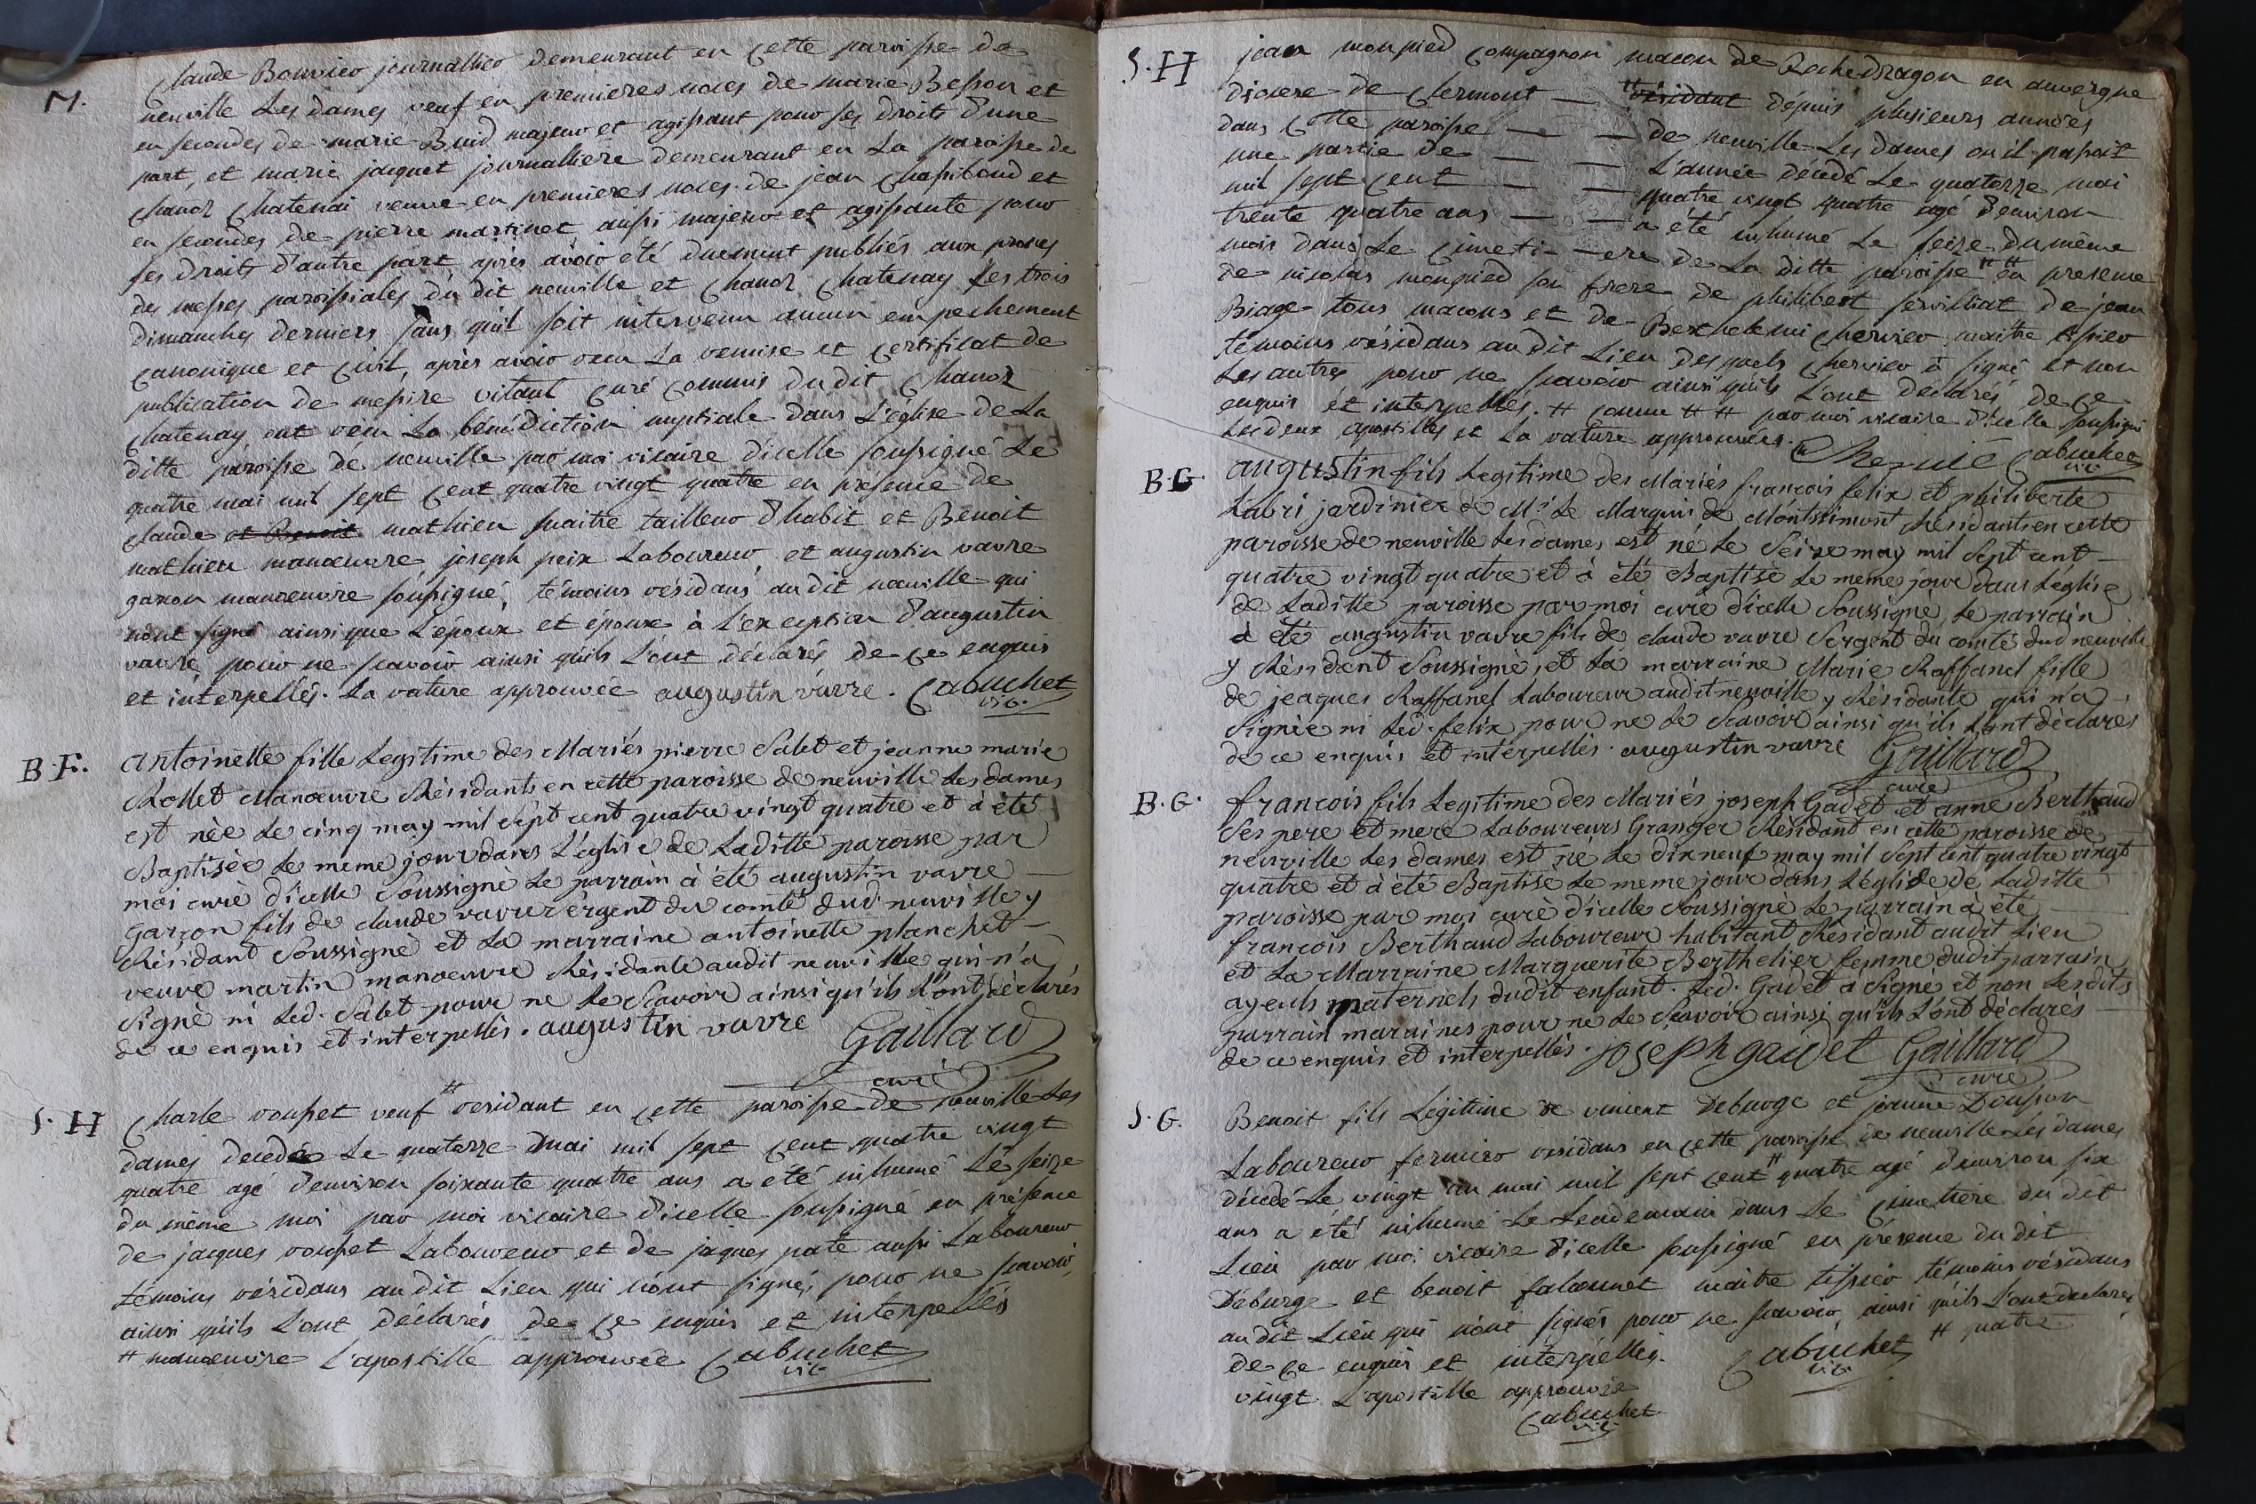 M.
Claude Bouvier journallier demeurant en cette paroisse de
neuville Les dames veuf en premieres noces de marie Besson et
en secondes de marie Buid majeur et agissant pour ses droits d'une
part, et marie jacquet journalliere demeurant en La paroisse de
Chanoz Chatenai veuve en premieres noces de jean Chassiboud et
en secondes de pierre martinet aussi majeure et agissante pour
ses droits d'autre part après avoir été duement publiés aux prones
des messes paroissiales du dit neuville et Chanoz Chatenay Les trois
dimanches derniers sans qu'il soit intervenu aucun empechement
canonique et Civil, après avoir veu La remise et Certificat de
publication de messire vitaut Curé Commis du dit Chanoz
Chatenay ont recu La bénédiction nuptiale dans L'église de La
ditte paroisse de neuville par moi vicaire d'icelle soussigné Le
quatre mai mil sept Cent quatre vingt quatre en présence de
Claude et Benoit mathieu maitre tailleur d'habit et Benoit
mathieu manoeuvre joseph peix Laboureur et augustin vavre
garson manoeuvre soussigné, témoins résidans au dit neuville qui
n'ont signé ainsi que L'époux et épouse à L'exception d'augustin
vavre pour ne scavoir ainsi qu'ils L'ont déclarés de Ce enquis
et interpellés. La rature approuvée augustin vavre. Cabuchet
vic.
B.F.
Antoinette fille Legitime des Mariés pierre Salet et jeanne marie
Rollet Manoeuvre Résidants en cette paroisse de neuville Les dames
est née Le cinq may mil Sept cent quatre vingt quatre et à été
Baptisée Le meme jour dans L'eglise de Laditte paroisse par
moi curé d'icelle Soussigné Le parrain à été augustin vavre
Garçon fils de claude vavre Sergent du comté dud. neuville y
Résidant Soussigné et La marraine antoinette planchet
veuve martin manoeuvre Résidante audit neuville qui n'a
Signé ni Led. Salet pour ne Le Scavoir ainsi qu'ils L'ont déclarés
de ce enquis et interpellés. augustin vavre Gaillard
curé
S.H
Charle voupet veuf # residant en Cette paroisse de neuville Les
dames decedée Le quatorze mai mil sept Cent quatre vingt
quatre agé d'environ soixante quatre ans a été inhumé Le seize
du même moi par moi vicaire d'icelle soussigné en présence
de jacques voupet Laboureur et de jaques paté aussi Laboureur
témoins résidans au dit Lieu qui n'ont signé, pour ne scavoir,
ainsi qu'ils L'ont déclarés de Ce enquis et interpellés
# manoeuvre L'apostille approuvée Cabuchet
vic
S.H
jean monpied Compagnon macon de Rochedragon en auvergne
diocese de Clermont — # résidant dépuis plusieurs années
dans Cette paroisse — — de neuville Les dames ou il passoit
une partie de — — L'année décédé Le quatorze mai
mil sept Cent — — quatre vingt quatre agé d'environ
trente quatre ans — — a été inhumé Le seize du même
mois dans Le Cimeti- -ere de La ditte paroisse ## en presence
de nicolas monpied son frere de philibert servilliat de jean
Biage tous macons et de Berthelemi Chervier maitre tissier
témoins résidans au dit Lieu desquels Chervier à signé et non
Les autres pour ne scavoir ainsi qu'ils L'ont déclarés de Ce
enquis et interpellés. # Connu ## par moi vicaire d'icelle soussigné
Les deux apostilles et La rature approuvées. Chervié Cabuchet
vic
B.G.
augustin fils Legitime des Mariés françois felix et philiberte
Labri jardinier de Mr Le Marquis de Montrimont Résidants en cette
paroisse de neuville Les dames est né Le Seize may mil Sept cent
quatre vingt quatre et à été Baptisé Le meme jour dans L'église
de Laditte paroisse par moi curé d'icelle Soussigné Le parrain
à été augustin vavre fils de claude vavre Sergent du comté dud neuville
y Résidant Soussigné, et La marraine Marie Raffanel fille
de jeaques Raffanel Laboureur audit neuville y Résidante qui n'a
Signée ni Led. felix pour ne Le Scavoir ainsi qu'ils L'ont déclarés
de ce enquis et interpellés. augustin vavre Gaillard
curé
B.G.
françois fils Legitime des Mariés joseph Gadet et anne Berthaud
Ses pere et mere Laboureurs Granger Résidant en cette paroisse de
neuville Les dames est né Le dix neuf may mil Sept cent quatre vingt
quatre et à été Baptisé Le meme jour dans L'église de Laditte
paroisse par moi curé d'icelle Soussigné Le parrain à été
françois Berthaud Laboureur habitant Résidant audit Lieu
et La Marraine Marguerite Berthelier femme dudit parrain
ayeuls maternels dudit enfant. Led. Gadet a Signé et non Lesdits
parrain maraines pour ne Le Scavoir ainsi qu'ils L'ont déclarés
de ce enquis et interpellés. joseph gaudet Gaillard
curé
S.G.
Benoit fils Légitime de vincent Deburge et jeanne Dousson
Laboureur fermiers residans en Cette paroisse de neuville Les dames
décédé Le vingt un mai mil sept Cent # quatre agé d'environ six
ans a été inhumé Le Lendemain dans Le Cimetiere du dit
Lieu par moi vicaire d'icelle soussigné en présence du dit
Déburge et benoit falconnet maitre tissier témoins résidans
au dit Lieu qui n'ont signés pour ne scavoir, ainsi qu'ils L'ont declarés
de Ce enquis et interpellés. Cabuchet # quatre
vic
vingt L'apostille approuvée
Cabuchet
vic